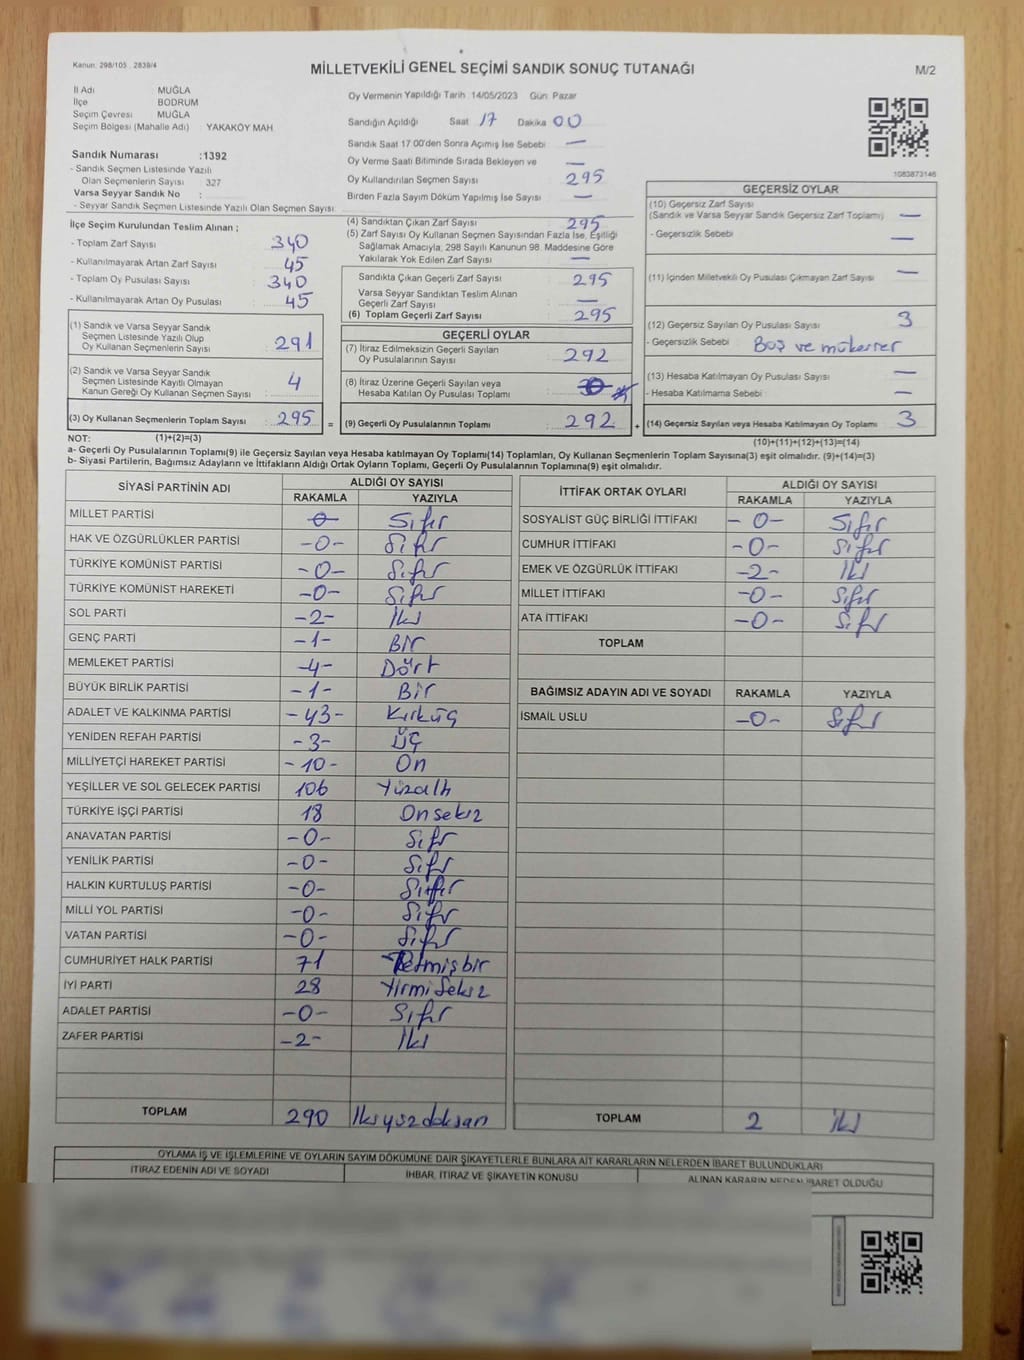 Kanun: 298/105 , 2839/4
MİLLETVEKİLİ GENEL SEÇİMİ SANDIK SONUÇ TUTANAĞI
M/2
İl Adı MUĞLA
İlçe BODRUM
Seçim Çevresi MUĞLA
Seçim Bölgesi (Mahalle Adı) : YAKAKÖY MAH
Sandık Numarası :1392
- Sandık Seçmen Listesinde Yazılı
Olan Seçmenlerin Sayısı : 327
Varsa Seyyar Sandık No :
- Seyyar Sandık Seçmen Listesinde Yazılı Olan Seçmen Sayısı:
Oy Vermenin Yapıldığı Tarih :14/05/2023 Gün: Pazar
Sandığın Açıldığı Saat 17 Dakika 00
Sandık Saat 17 00'den Sonra Açımış İse Sebebi —
Oy Verme Saati Bitiminde Sırada Bekleyen ve —
Oy Kullandırılan Seçmen Sayısı 295
Birden Fazla Sayım Döküm Yapılmış İse Sayısı —
1083873146
İlçe Seçim Kurulundan Teslim Alınan ;
- Toplam Zarf Sayısı : 340
- Kullanılmayarak Artan Zarf Sayısı : 45
- Toplam Oy Pusulası Sayısı : 340
- Kullanılmayarak Artan Oy Pusulası : 45
(1) Sandık ve Varsa Seyyar Sandık
Seçmen Listesinde Yazılı Olup
Oy Kullanan Seçmenlerin Sayısı : 291
(2) Sandık ve Varsa Seyyar Sandık
Seçmen Listesinde Kayıtlı Olmayan
Kanun Gereği Oy Kullanan Seçmen Sayısı : 4
(3) Oy Kullanan Seçmenlerin Toplam Sayısı : 295 =
(4) Sandıktan Çıkan Zarf Sayısı : 295
(5) Zarf Sayısı Oy Kullanan Seçmen Sayısından Fazla İse, Eşitliği
Sağlamak Amacıyla, 298 Sayılı Kanunun 98. Maddesine Göre
Yakılarak Yok Edilen Zarf Sayısı : —
Sandıkta Çıkan Geçerli Zarf Sayısı : 295
Varsa Seyyar Sandıktan Teslim Alınan
Geçerli Zarf Sayısı : —
(6) Toplam Geçerli Zarf Sayısı : 295
GEÇERLİ OYLAR
(7) İtiraz Edilmeksizin Geçerli Sayılan
Oy Pusulalarının Sayısı : 292
(8) İtiraz Üzerine Geçerli Sayılan veya
Hesaba Katılan Oy Pusulası Toplamı :
(9) Geçerli Oy Pusulalarının Toplamı : 292 +
GEÇERSİZ OYLAR
(10) Geçersiz Zarf Sayısı
(Sandık ve Varsa Seyyar Sandık Geçersiz Zarf Toplamı) : —
- Geçersizlik Sebebi : —
(11) İçinden Milletvekili Oy Pusulası Çıkmayan Zarf Sayısı : —
(12) Geçersiz Sayılan Oy Pusulası Sayısı : 3
- Geçersizlik Sebebi : Boş ve mükerrer
(13) Hesaba Katılmayan Oy Pusulası Sayısı : —
- Hesaba Katılmama Sebebi : —
(14) Geçersiz Sayılan veya Hesaba Katılmayan Oy Toplamı : 3
NOT: (1)+(2)=(3)
(10)+(11)+(12)+(13)=(14)
a- Geçerli Oy Pusulalarının Toplamı(9) ile Geçersiz Sayılan veya Hesaba katılmayan Oy Toplamı(14) Toplamları, Oy Kullanan Seçmenlerin Toplam Sayısına(3) eşit olmalıdır. (9)+(14)=(3)
b- Siyasi Partilerin, Bağımsız Adayların ve İttifakların Aldığı Ortak Oyların Toplamı, Geçerli Oy Pusulalarının Toplamına(9) eşit olmalıdır.
SİYASİ PARTİNİN ADI ALDIĞI OY SAYISI
RAKAMLA YAZIYLA
MİLLET PARTİSİ -0- Sıfır
HAK VE ÖZGÜRLÜKLER PARTİSİ -0- Sıfır
TÜRKİYE KOMÜNİST PARTİSİ -0- Sıfır
TÜRKİYE KOMÜNİST HAREKETİ -0- Sıfır
SOL PARTİ -2- İki
GENÇ PARTİ -1- Bir
MEMLEKET PARTİSİ -4- Dört
BÜYÜK BİRLİK PARTİSİ -1- Bir
ADALET VE KALKINMA PARTİSİ -43- Kırküç
YENİDEN REFAH PARTİSİ -3- Üç
MİLLİYETÇİ HAREKET PARTİSİ -10- On
YEŞİLLER VE SOL GELECEK PARTİSİ 106 Yüzaltı
TÜRKİYE İŞÇİ PARTİSİ 18 Onsekiz
ANAVATAN PARTİSİ -0- Sıfır
YENİLİK PARTİSİ -0- Sıfır
HALKIN KURTULUŞ PARTİSİ -0- Sıfır
MİLLİ YOL PARTİSİ -0- Sıfır
VATAN PARTİSİ -0- Sıfır
CUMHURİYET HALK PARTİSİ 71 Yetmişbir
İYİ PARTİ 28 Yirmisekiz
ADALET PARTİSİ -0- Sıfır
ZAFER PARTİSİ -2- İki
TOPLAM 290 İkiyüzdoksan
İTTİFAK ORTAK OYLARI ALDIĞI OY SAYISI
RAKAMLA YAZIYLA
SOSYALİST GÜÇ BİRLİĞİ İTTİFAKI -0- Sıfır
CUMHUR İTTİFAKI -0- Sıfır
EMEK VE ÖZGÜRLÜK İTTİFAKI -2- İki
MİLLET İTTİFAKI -0- Sıfır
ATA İTTİFAKI -0- Sıfır
TOPLAM
BAĞIMSIZ ADAYIN ADI VE SOYADI RAKAMLA YAZIYLA
İSMAİL USLU -0- Sıfır
TOPLAM 2 İki
OYLAMA İŞ VE İŞLEMLERİNE VE OYLARIN SAYIM DÖKÜMÜNE DAİR ŞİKAYETLERLE BUNLARA AİT KARARLARIN NELERDEN İBARET BULUNDUKLARI
İTİRAZ EDENİN ADI VE SOYADI İHBAR, İTİRAZ VE ŞİKAYETİN KONUSU ALINAN KARARIN NEDEN İBARET OLDUĞU